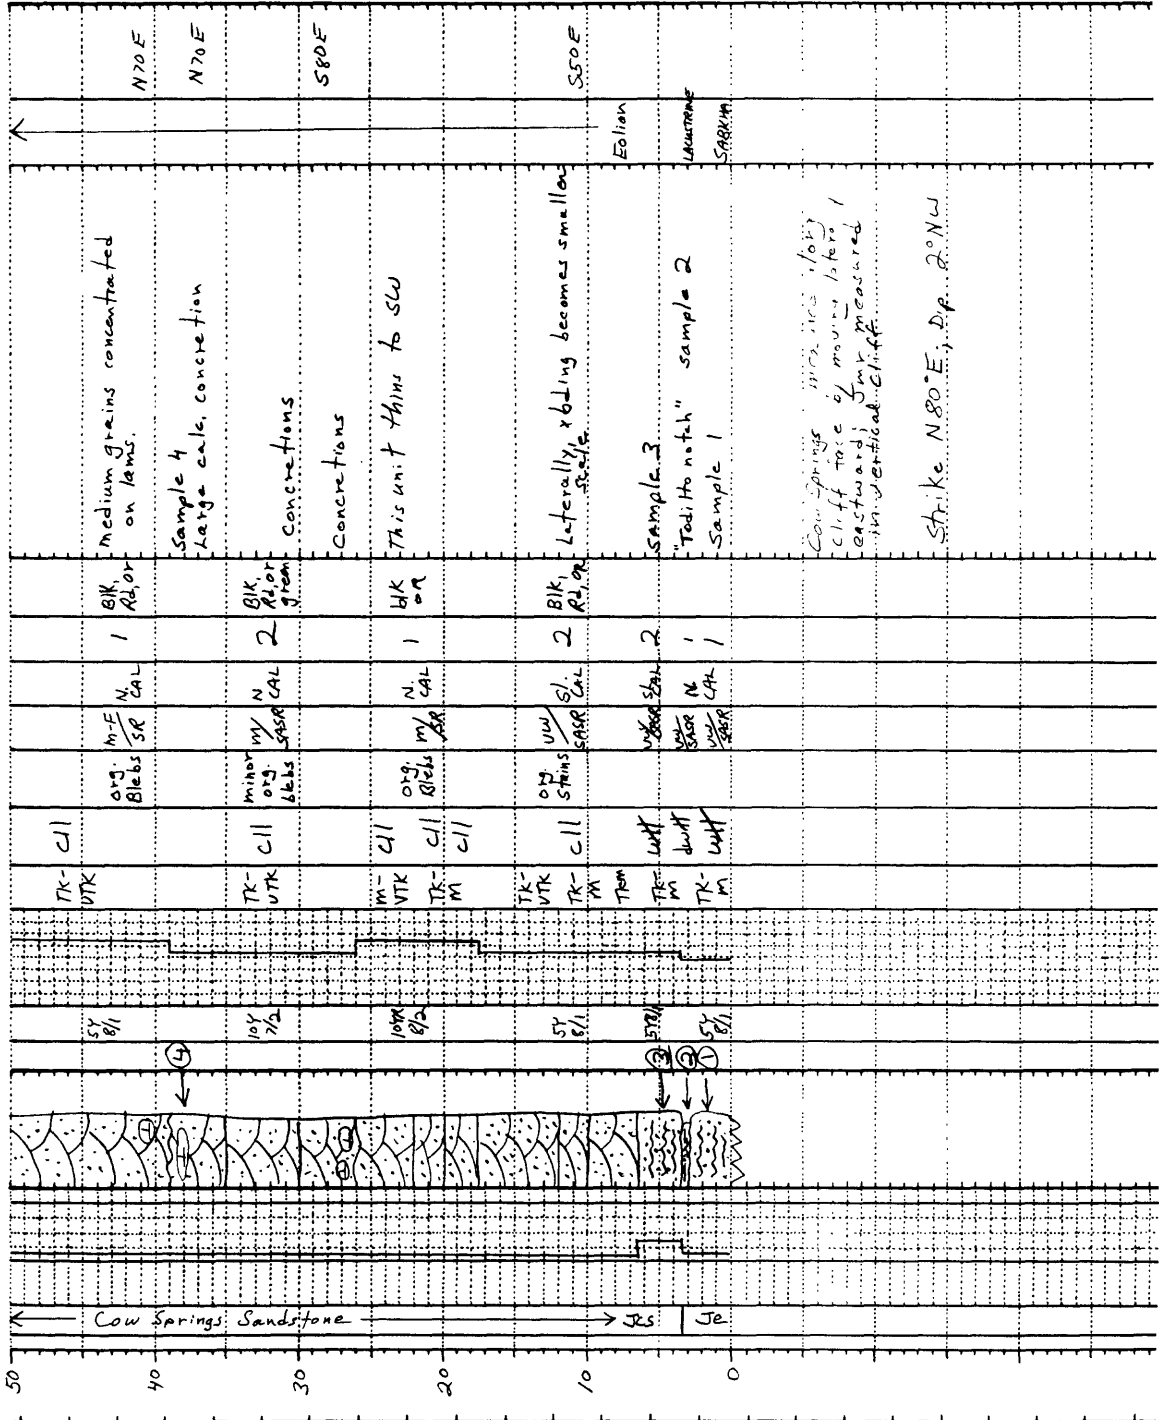 N70E
N70E
S80E
S50E
Eolian
LACUSTRINE
SABKHA
medium grains concentrated
on lams.
Sample 4
Large calc. concretion
Concretions
Concretions
This unit thins to SW
Laterally, xbding becomes smaller
scale
Sample 3
"Todilto notch" sample 2
Sample 1
Cow Springs
cliff face
eastward; measured
in vertical cliff.
Strike N80°E, Dip 2°NW
Blk,
Rd, or
Blk,
Rd, or
green
blk
or
Blk,
Rd, or
1
2
1
2
2
1
1
N.
CAL
N
CAL
N.
CAL
Sl.
CAL
Sl.
CAL
N.
CAL
m-F
/SR
m/
SASR
m/
SR
VW/
SASR
VW/
SASR
VW/
SASR
org.
Blebs
minor
org.
blebs
org.
Blebs
org.
Stains
cll
cll
cll
cll
cll
cll
TK-
VTK
TK-
VTK
m-
VTK
TK-
M
TK-
VTK
TK-
M
TK-
M
TK-
M
5Y
8/1
10Y
7/2
10YR
8/2
5Y
8/1
5Y8/1
5Y
8/1
4
3
2
1
Cow Springs Sandstone
Jcs
Je
50
40
30
20
10
0